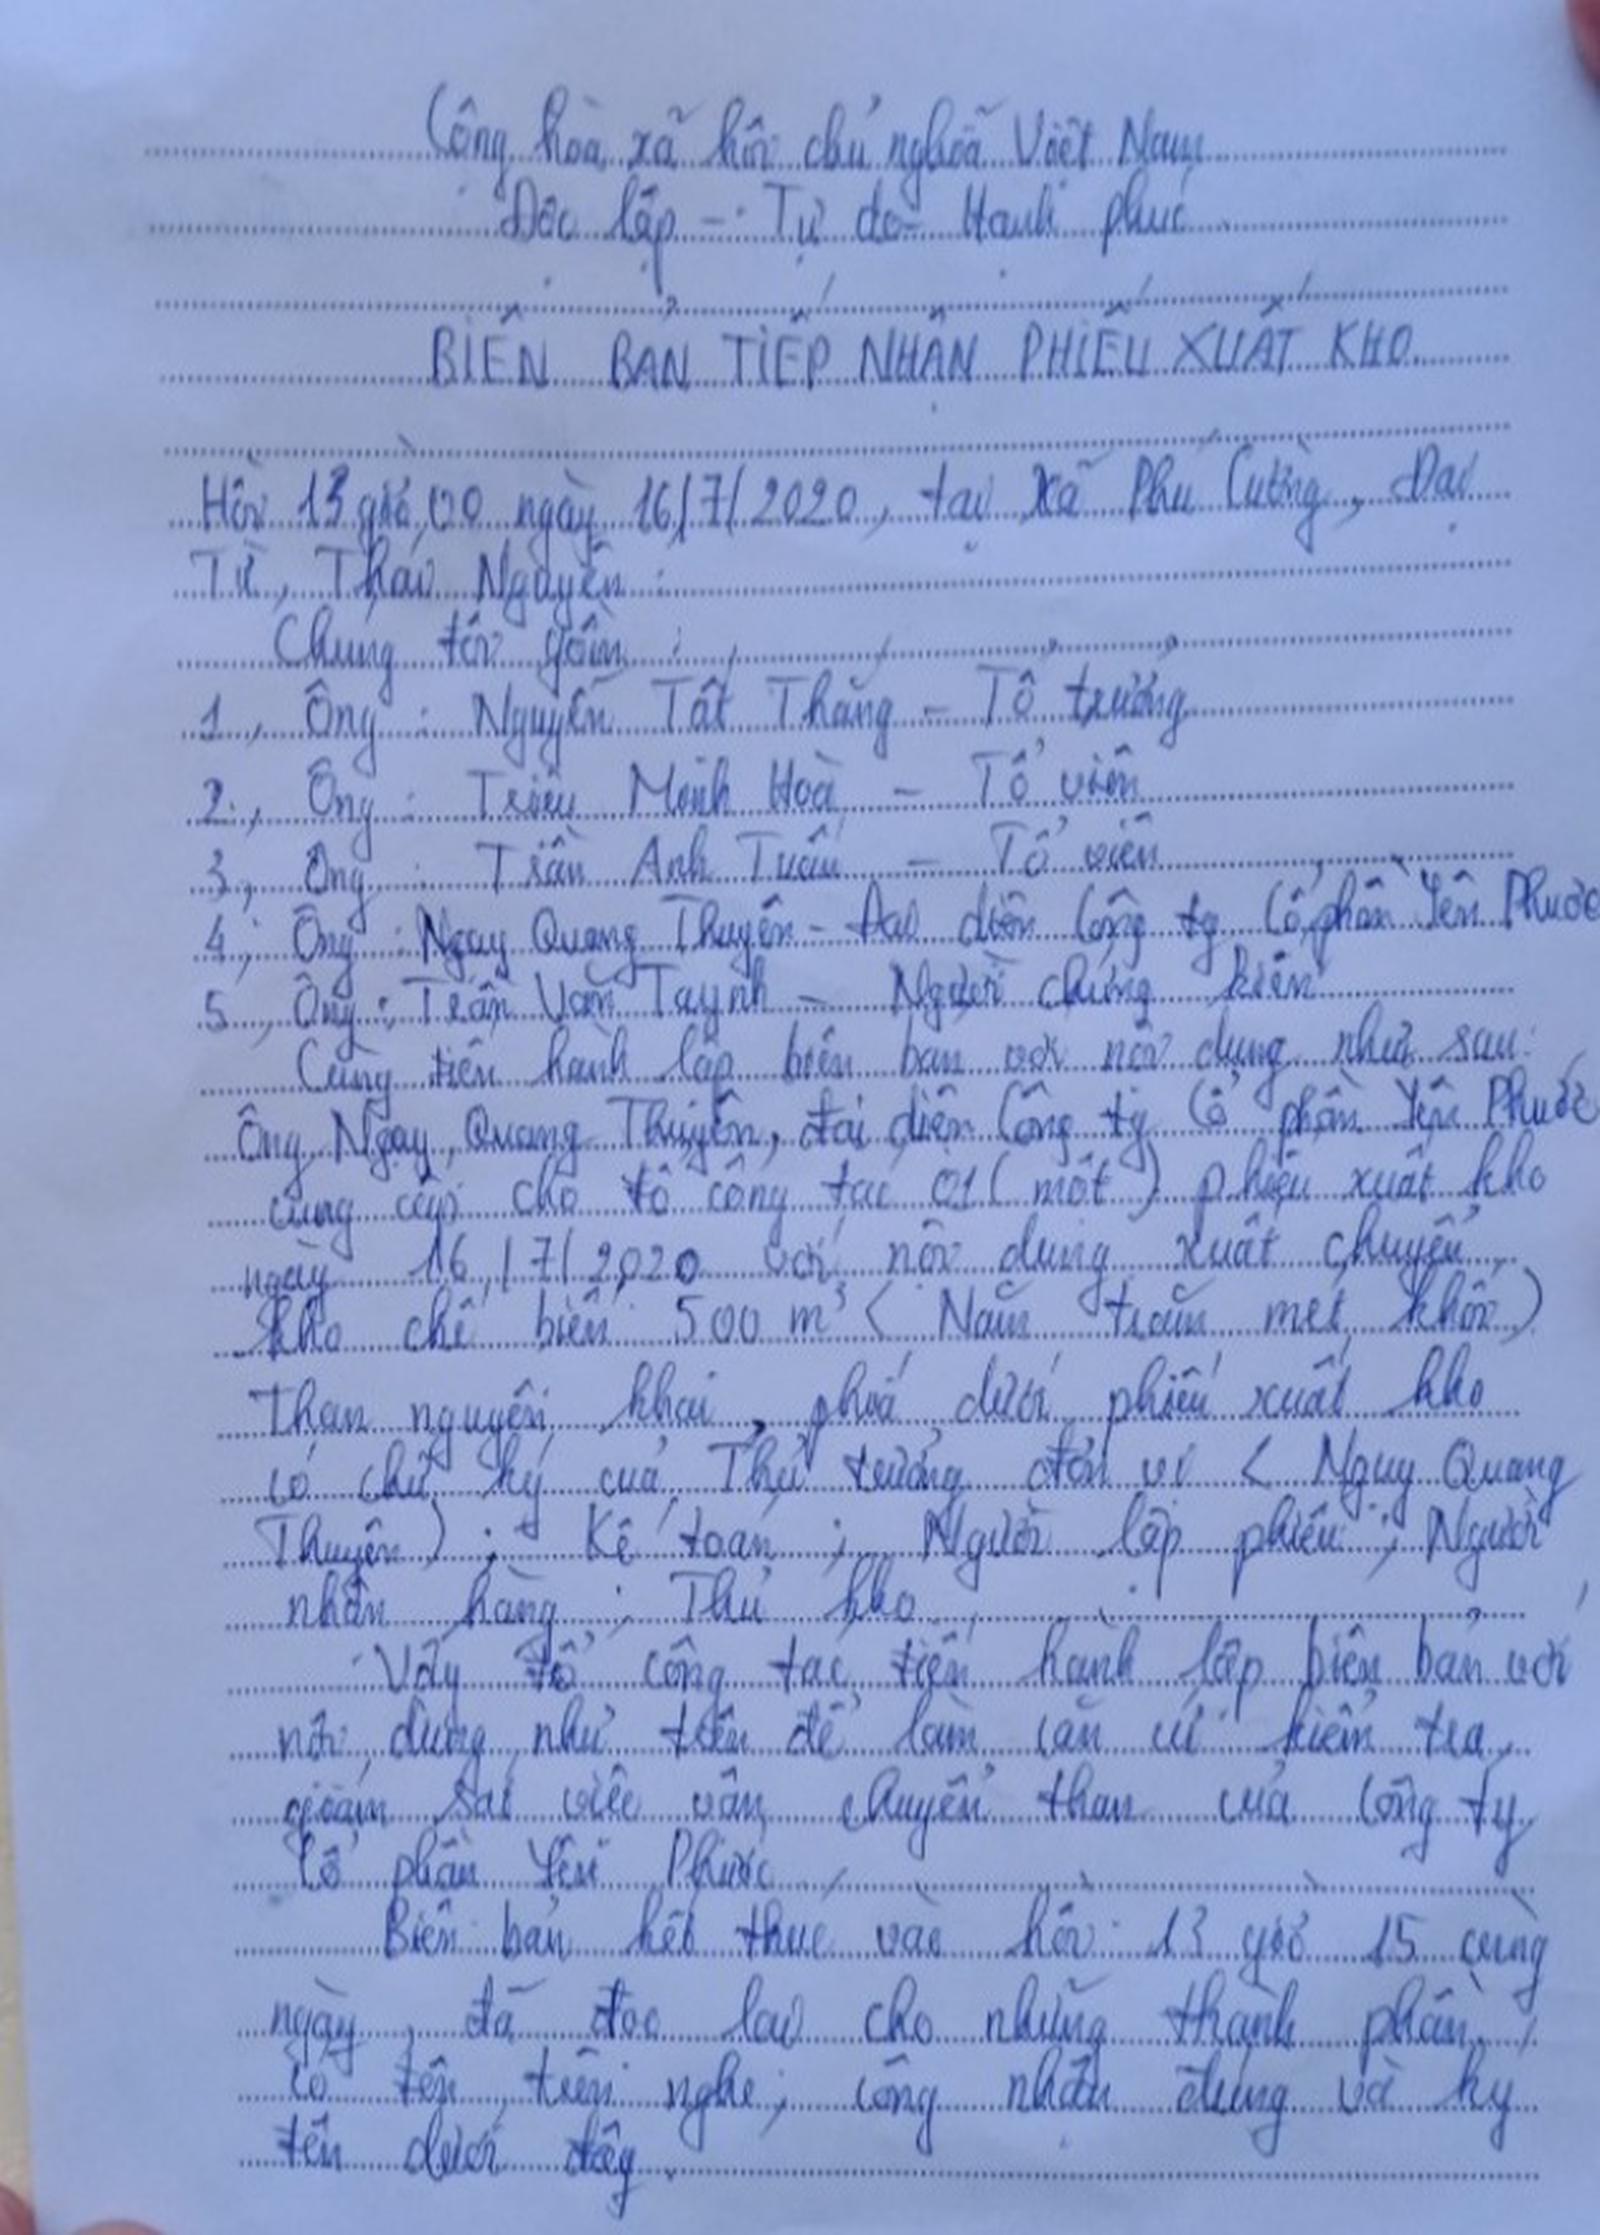 Cộng hòa xã hội chủ nghĩa Việt Nam
Độc lập - Tự do - Hạnh phúc
BIÊN BẢN TIẾP NHẬN PHIẾU XUẤT KHO
Hồi 13 giờ 00 ngày 16/7/2020, tại xã Phú Cường, Đại
Từ, Thái Nguyên :
Chúng tôi gồm :
1, Ông : Nguyễn Tất Thắng - Tổ trưởng
2, Ông : Triệu Minh Hoà - Tổ viên
3, Ông : Trần Anh Tuấn - Tổ viên
4, Ông : Ngụy Quang Thuyên - Đại diện Công ty Cổ phần Yên Phước
5, Ông : Trần Văn Taynh - Người chứng kiến
Cùng tiến hành lập biên bản với nội dung như sau:
Ông Ngụy Quang Thuyên, đại diện Công ty Cổ phần Yên Phước
cung cấp cho tổ công tác 01 (một) phiếu xuất kho
ngày 16/7/2020 với nội dung xuất chuyển
kho chế biến 500 m³ (Năm trăm mét khối)
Than nguyên khai, phía dưới phiếu xuất kho
có chữ ký của Thủ trưởng đơn vị (Ngụy Quang
Thuyên) ; Kế toán ; Người lập phiếu ; Người
nhận hàng ; Thủ kho
Vậy tổ công tác tiến hành lập biên bản với
nội dung như trên để làm căn cứ kiểm tra,
giám sát việc vận chuyển than của Công ty
Cổ phần Yên Phước
Biên bản kết thúc vào hồi 13 giờ 15 cùng
ngày, đã đọc lại cho những thành phần
có tên trên nghe, công nhận đúng và ký
tên dưới đây.